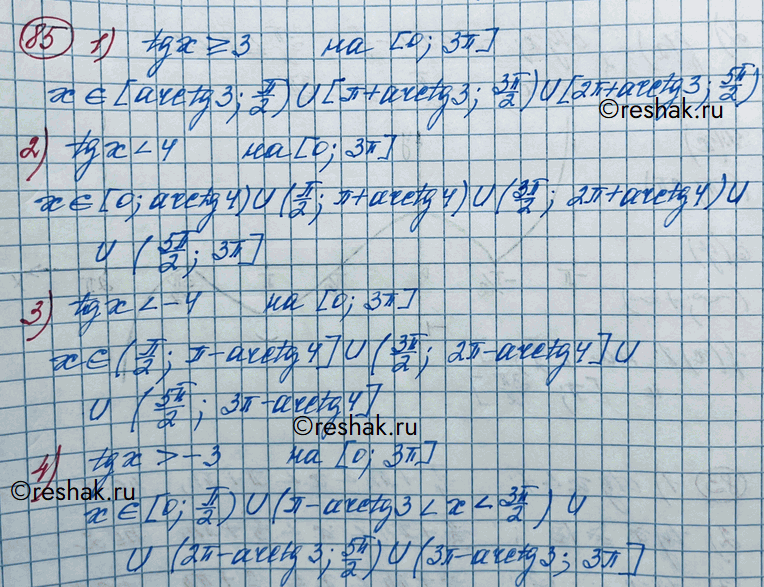 85 1) tg x ≥ 3 на [0; 3π]
x ∈ [arctg 3; π/2) ∪ [π + arctg 3; 3π/2) ∪ [2π + arctg 3; 5π/2)
©reshak.ru
2) tg x < 4 на [0; 3π]
x ∈ [0; arctg 4) ∪ (π/2; π + arctg 4) ∪ (3π/2; 2π + arctg 4) ∪
∪ (5π/2; 3π]
3) tg x < -4 на [0; 3π]
x ∈ (π/2; π - arctg 4] ∪ (3π/2; 2π - arctg 4] ∪
∪ (5π/2; 3π - arctg 4]
©reshak.ru
4) tg x > -3 на [0; 3π]
©reshak.ru
x ∈ [0; π/2) ∪ (π - arctg 3 < x < 3π/2) ∪
∪ (2π - arctg 3; 5π/2) ∪ (3π - arctg 3; 3π]